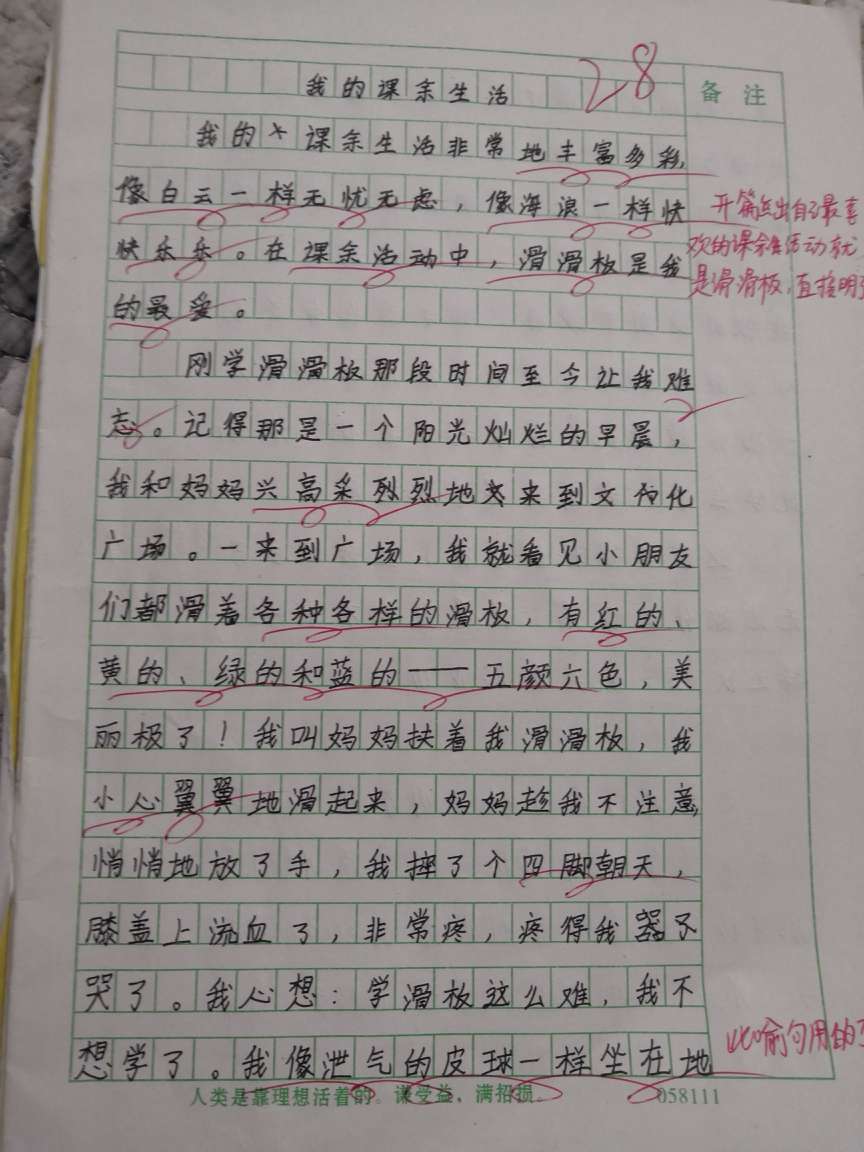 28
我的课余生活
备注
我的课余生活非常地丰富多彩,
像白云一样无忧无虑，像海浪一样快
快乐乐。在课余活动中，滑滑板是我
的最爱。
开篇点出自己最喜
欢的课余活动就
是滑滑板，直接明了
刚学滑滑板那段时间至今让我难
忘。记得那是一个阳光灿烂的早晨，
我和妈妈兴高采烈烈地来到文化
广场。一来到广场，我就看见小朋友
们都滑着各种各样的滑板，有红的、
黄的、绿的和蓝的——五颜六色，美
丽极了！我叫妈妈扶着我滑滑板，我
小心翼翼地滑起来，妈妈趁我不注意,
悄悄地放了手，我摔了个四脚朝天，
膝盖上流血了，非常疼，疼得我
哭了。我心想：学滑板这么难，我不
想学了。我像泄气的皮球一样坐在地
比喻句用的
人类是靠理想活着的。谦受益，满招损。
058111